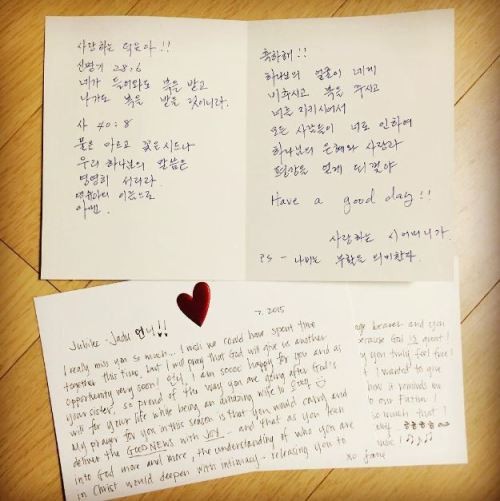 사랑하는 덕은아!!
신명기 28:6
네가 들어와도 복을 받고
나가도 복을 받을 것이니라.
사 40:8
풀은 마르고 꽃은 시드나
우리 하나님의 말씀은
영영히 서리라.
이름으로
아멘.
축하해!!
하나님의 얼굴이 네게
비추시고 복을 주시고
너를 지키시어서
모든 사람들이 너로 인하여
하나님의 은혜와 사랑과
평강을 얻게 되길
Have a good day!!
사랑하는 시어머니가.
PS - 나비는 부활을 의미한다.
7. 2015
Jubilee Jadu 언니!!
I really miss you so much... I wish we could have spent time
together this time, but I will pray that God will give us another
opportunity very soon! I am sooo happy for you and as
your sister, so proud of the way you are going after God's
will for your life while being an amazing wife to
My prayer for you in this season is that you would carry and
deliver the GOOD NEWS with JOY - and that as you lean
into God more and more, the understanding of who you are
in Christ would deepen with intimacy - releasing you to
age heaven and you
because God IS great!
you truly feel free!
I wanted to give
how it reminds me
to our Father!
so much that!
xo